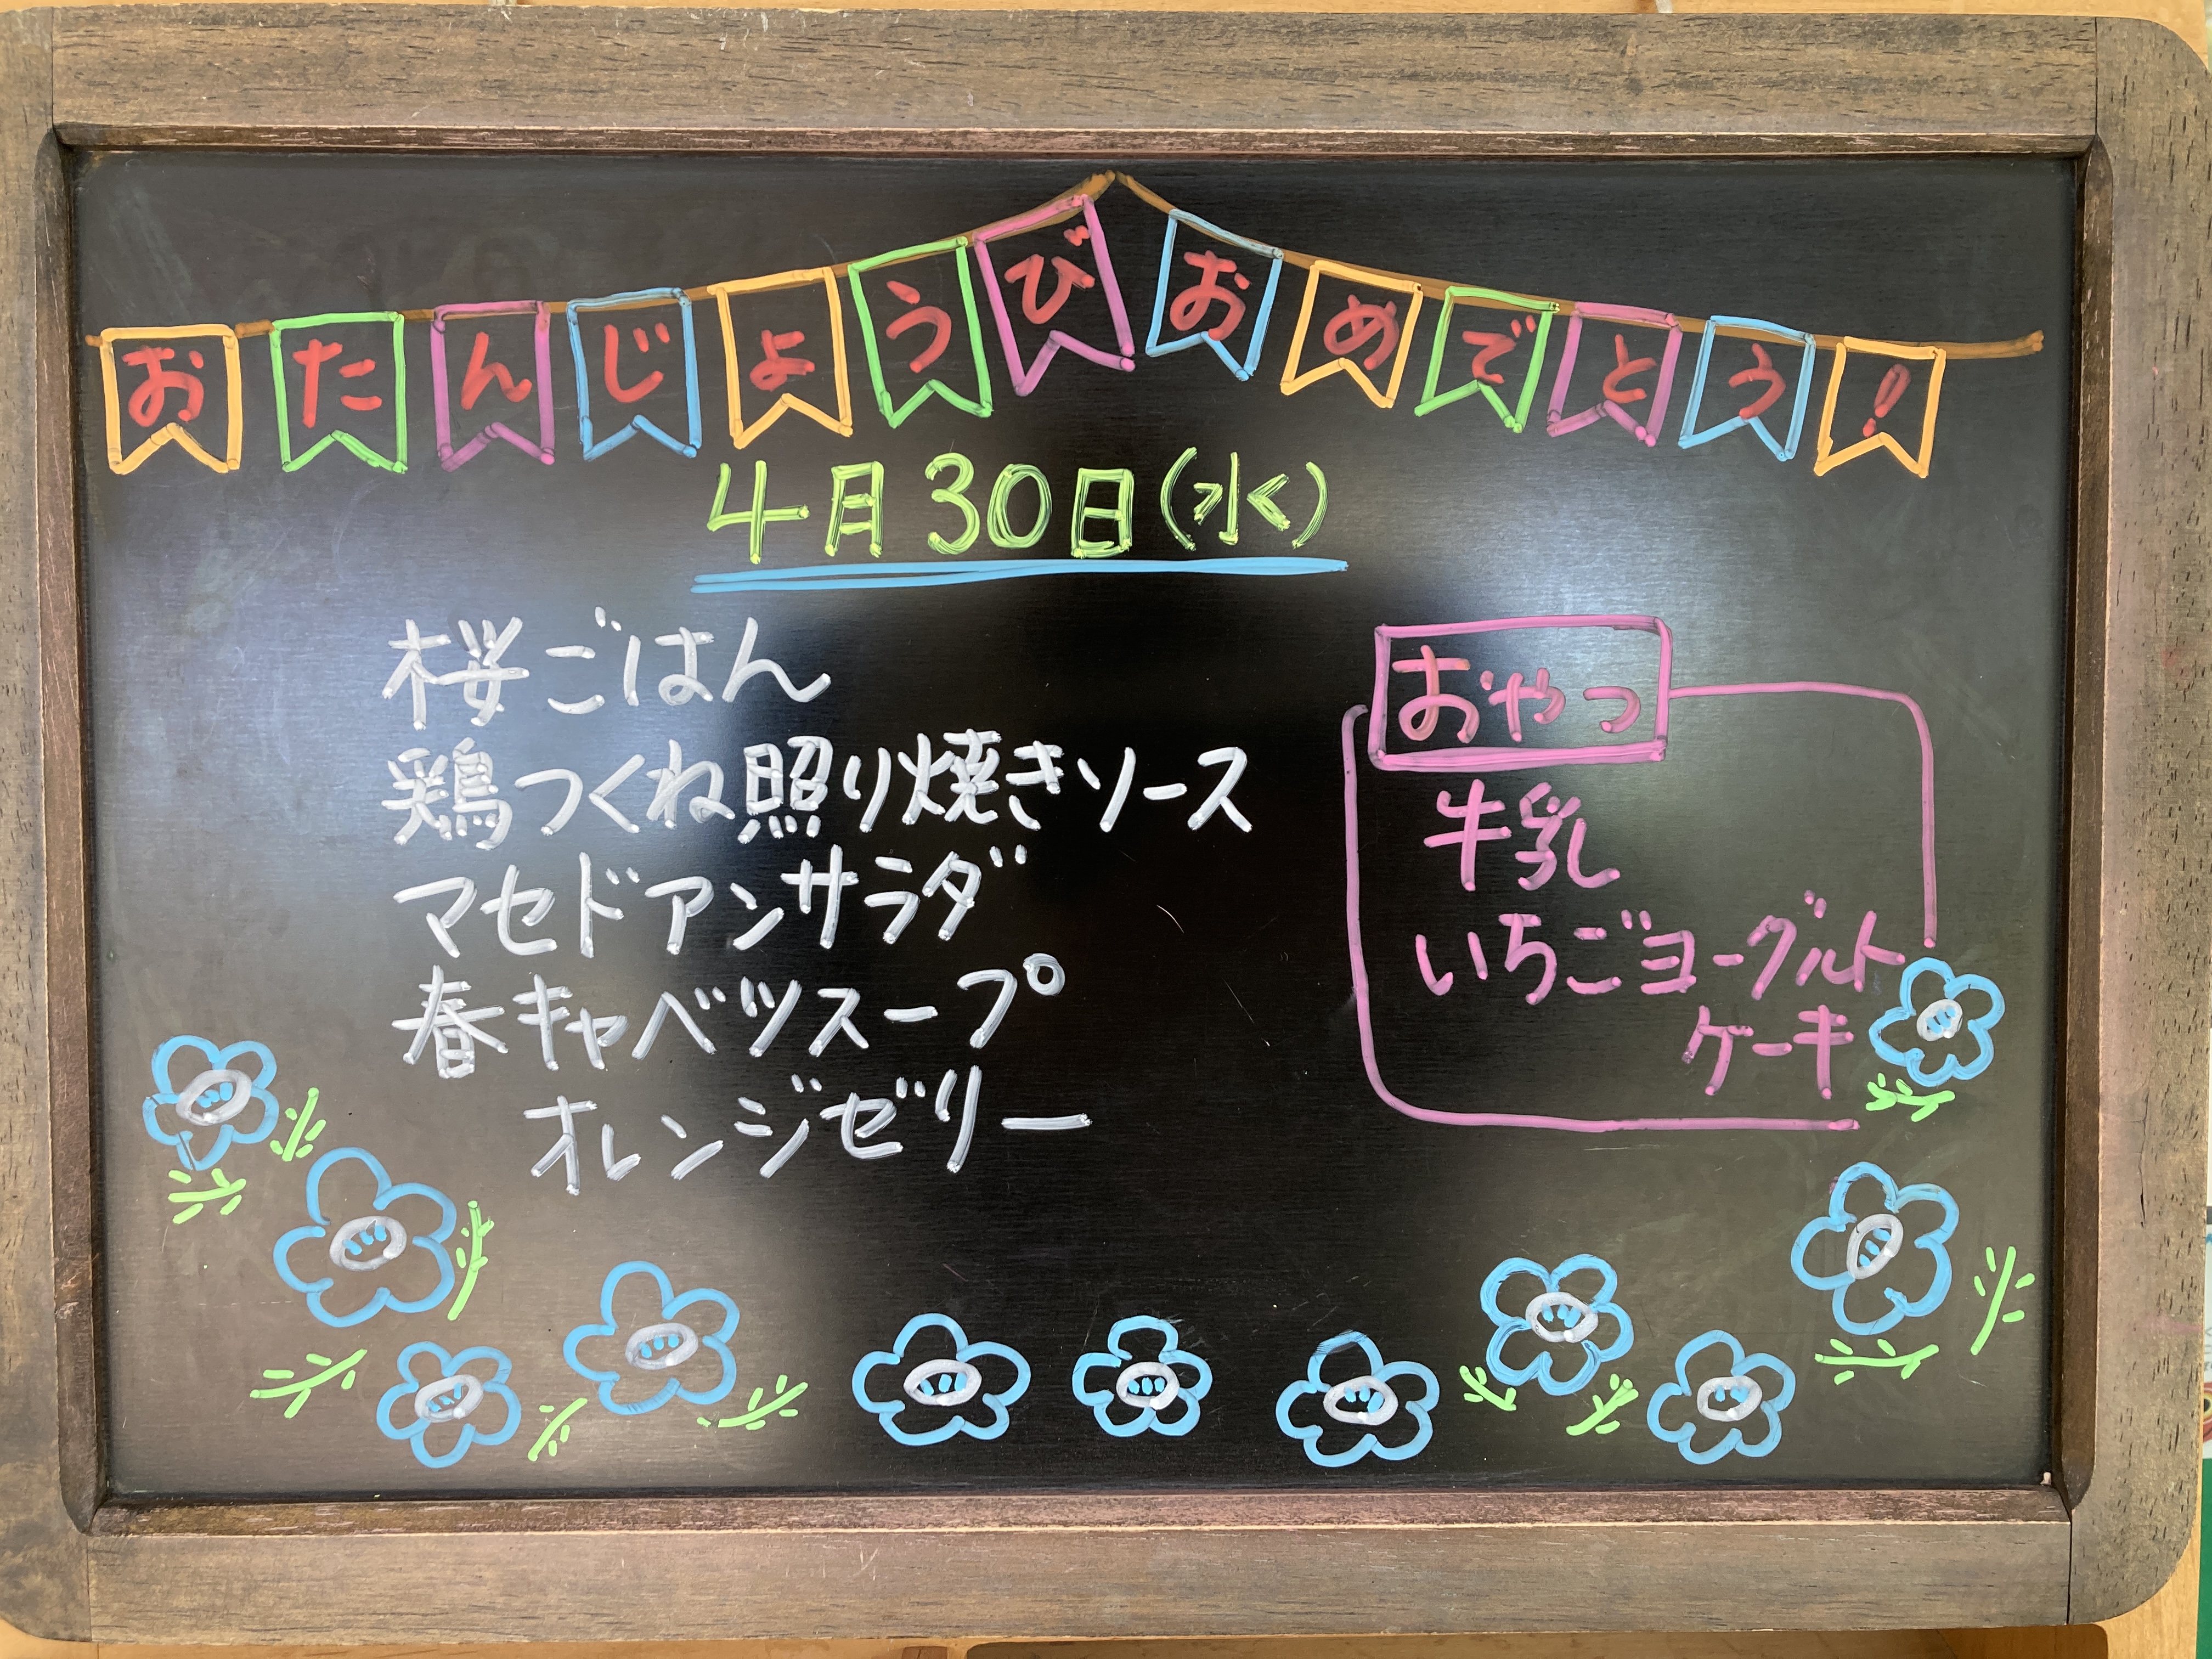 おたんじょうびおめでとう!
4月30日(水)
桜ごはん
鶏つくね照り焼きソース
マセドアンサラダ
春キャベツスープ
オレンジゼリー
おやつ
牛乳
いちごヨーグルト
ケーキ